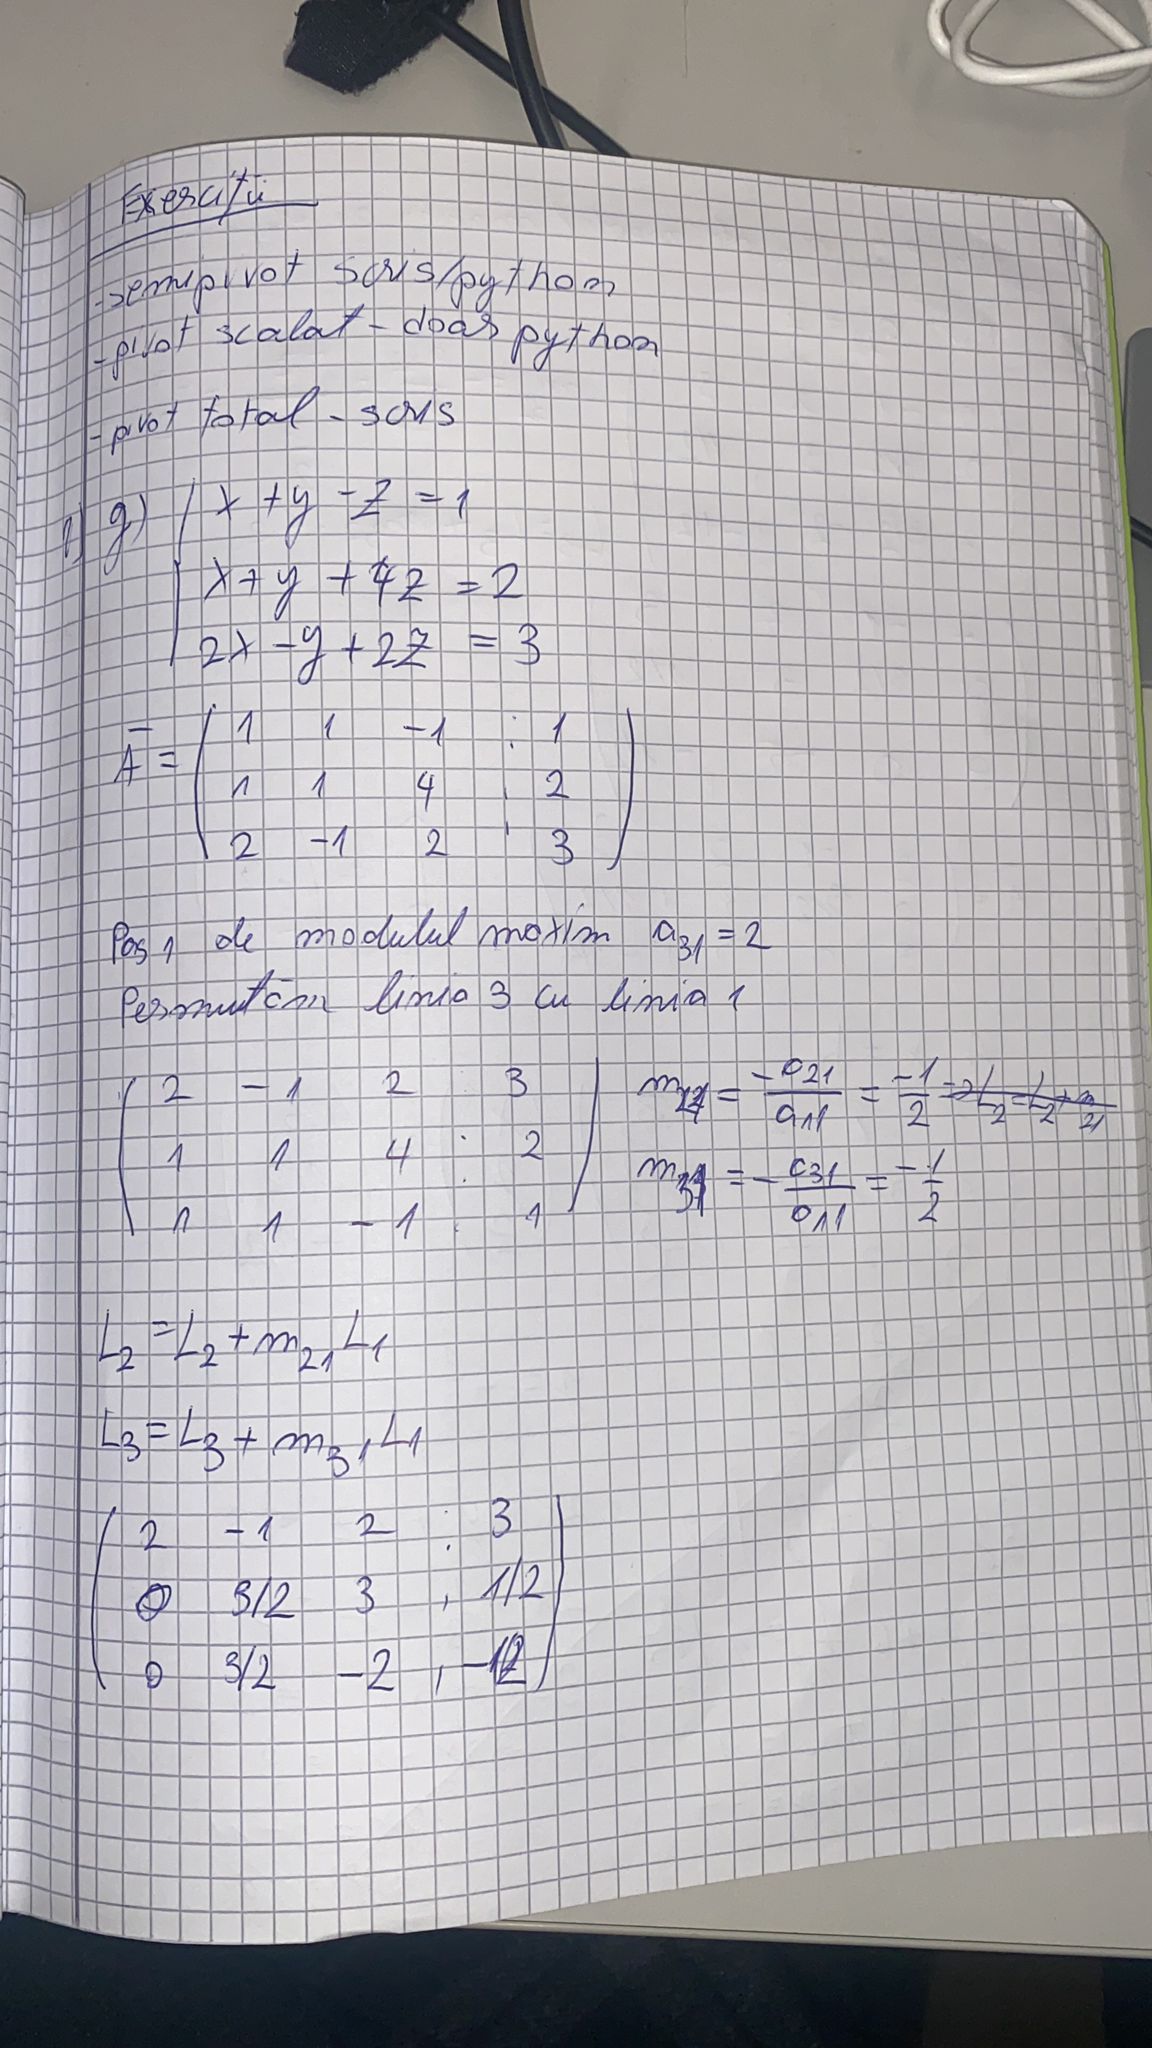 Exercitii
-semipivot scris/python
-pivot scalat - doar python
-pivot total - scris
1) g) x + y - z = 1
x + y + 4z = 2
2x - y + 2z = 3
Ā = ( 1 1 -1 : 1
1 1 4 : 2
2 -1 2 : 3 )
Pas 1 de modulul maxim a31 = 2
Permutăm linia 3 cu linia 1
( 2 -1 2 : 3 ) m21 = -a21/a11 = -1/2 => L2 = L2 + m21
1 1 4 : 2
1 1 -1 : 1 m31 = -a31/a11 = -1/2
L2 = L2 + m21 L1
L3 = L3 + m31 L1
( 2 -1 2 : 3
0 3/2 3 : 1/2
0 3/2 -2 : -1/2 )